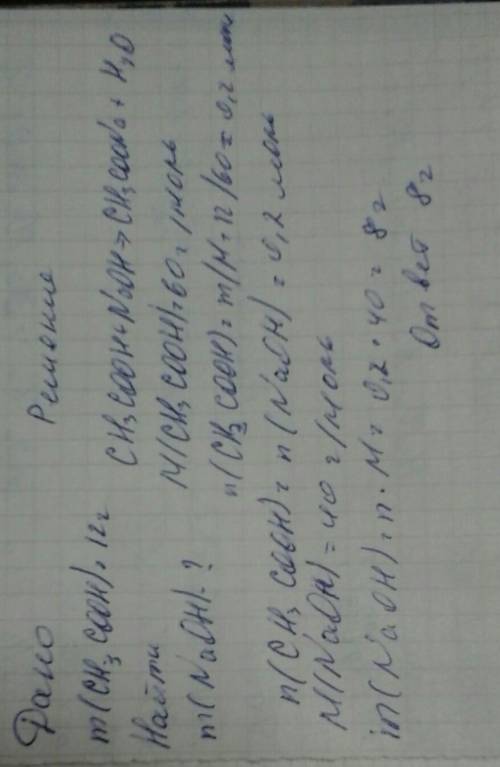 Дано
m(CH₃COOH)=12г
Найти
m(NaOH)-?
Решение
CH₃COOH+NaOH=>CH₃COONa+H₂O
M(CH₃COOH)=60г/моль
n(CH₃COOH)=m/M=12/60=0,2 моль
n(CH₃COOH)=n(NaOH)=0,2 моль
M(NaOH)=40г/моль
m(NaOH)=n·M=0,2·40=8г
Ответ 8г